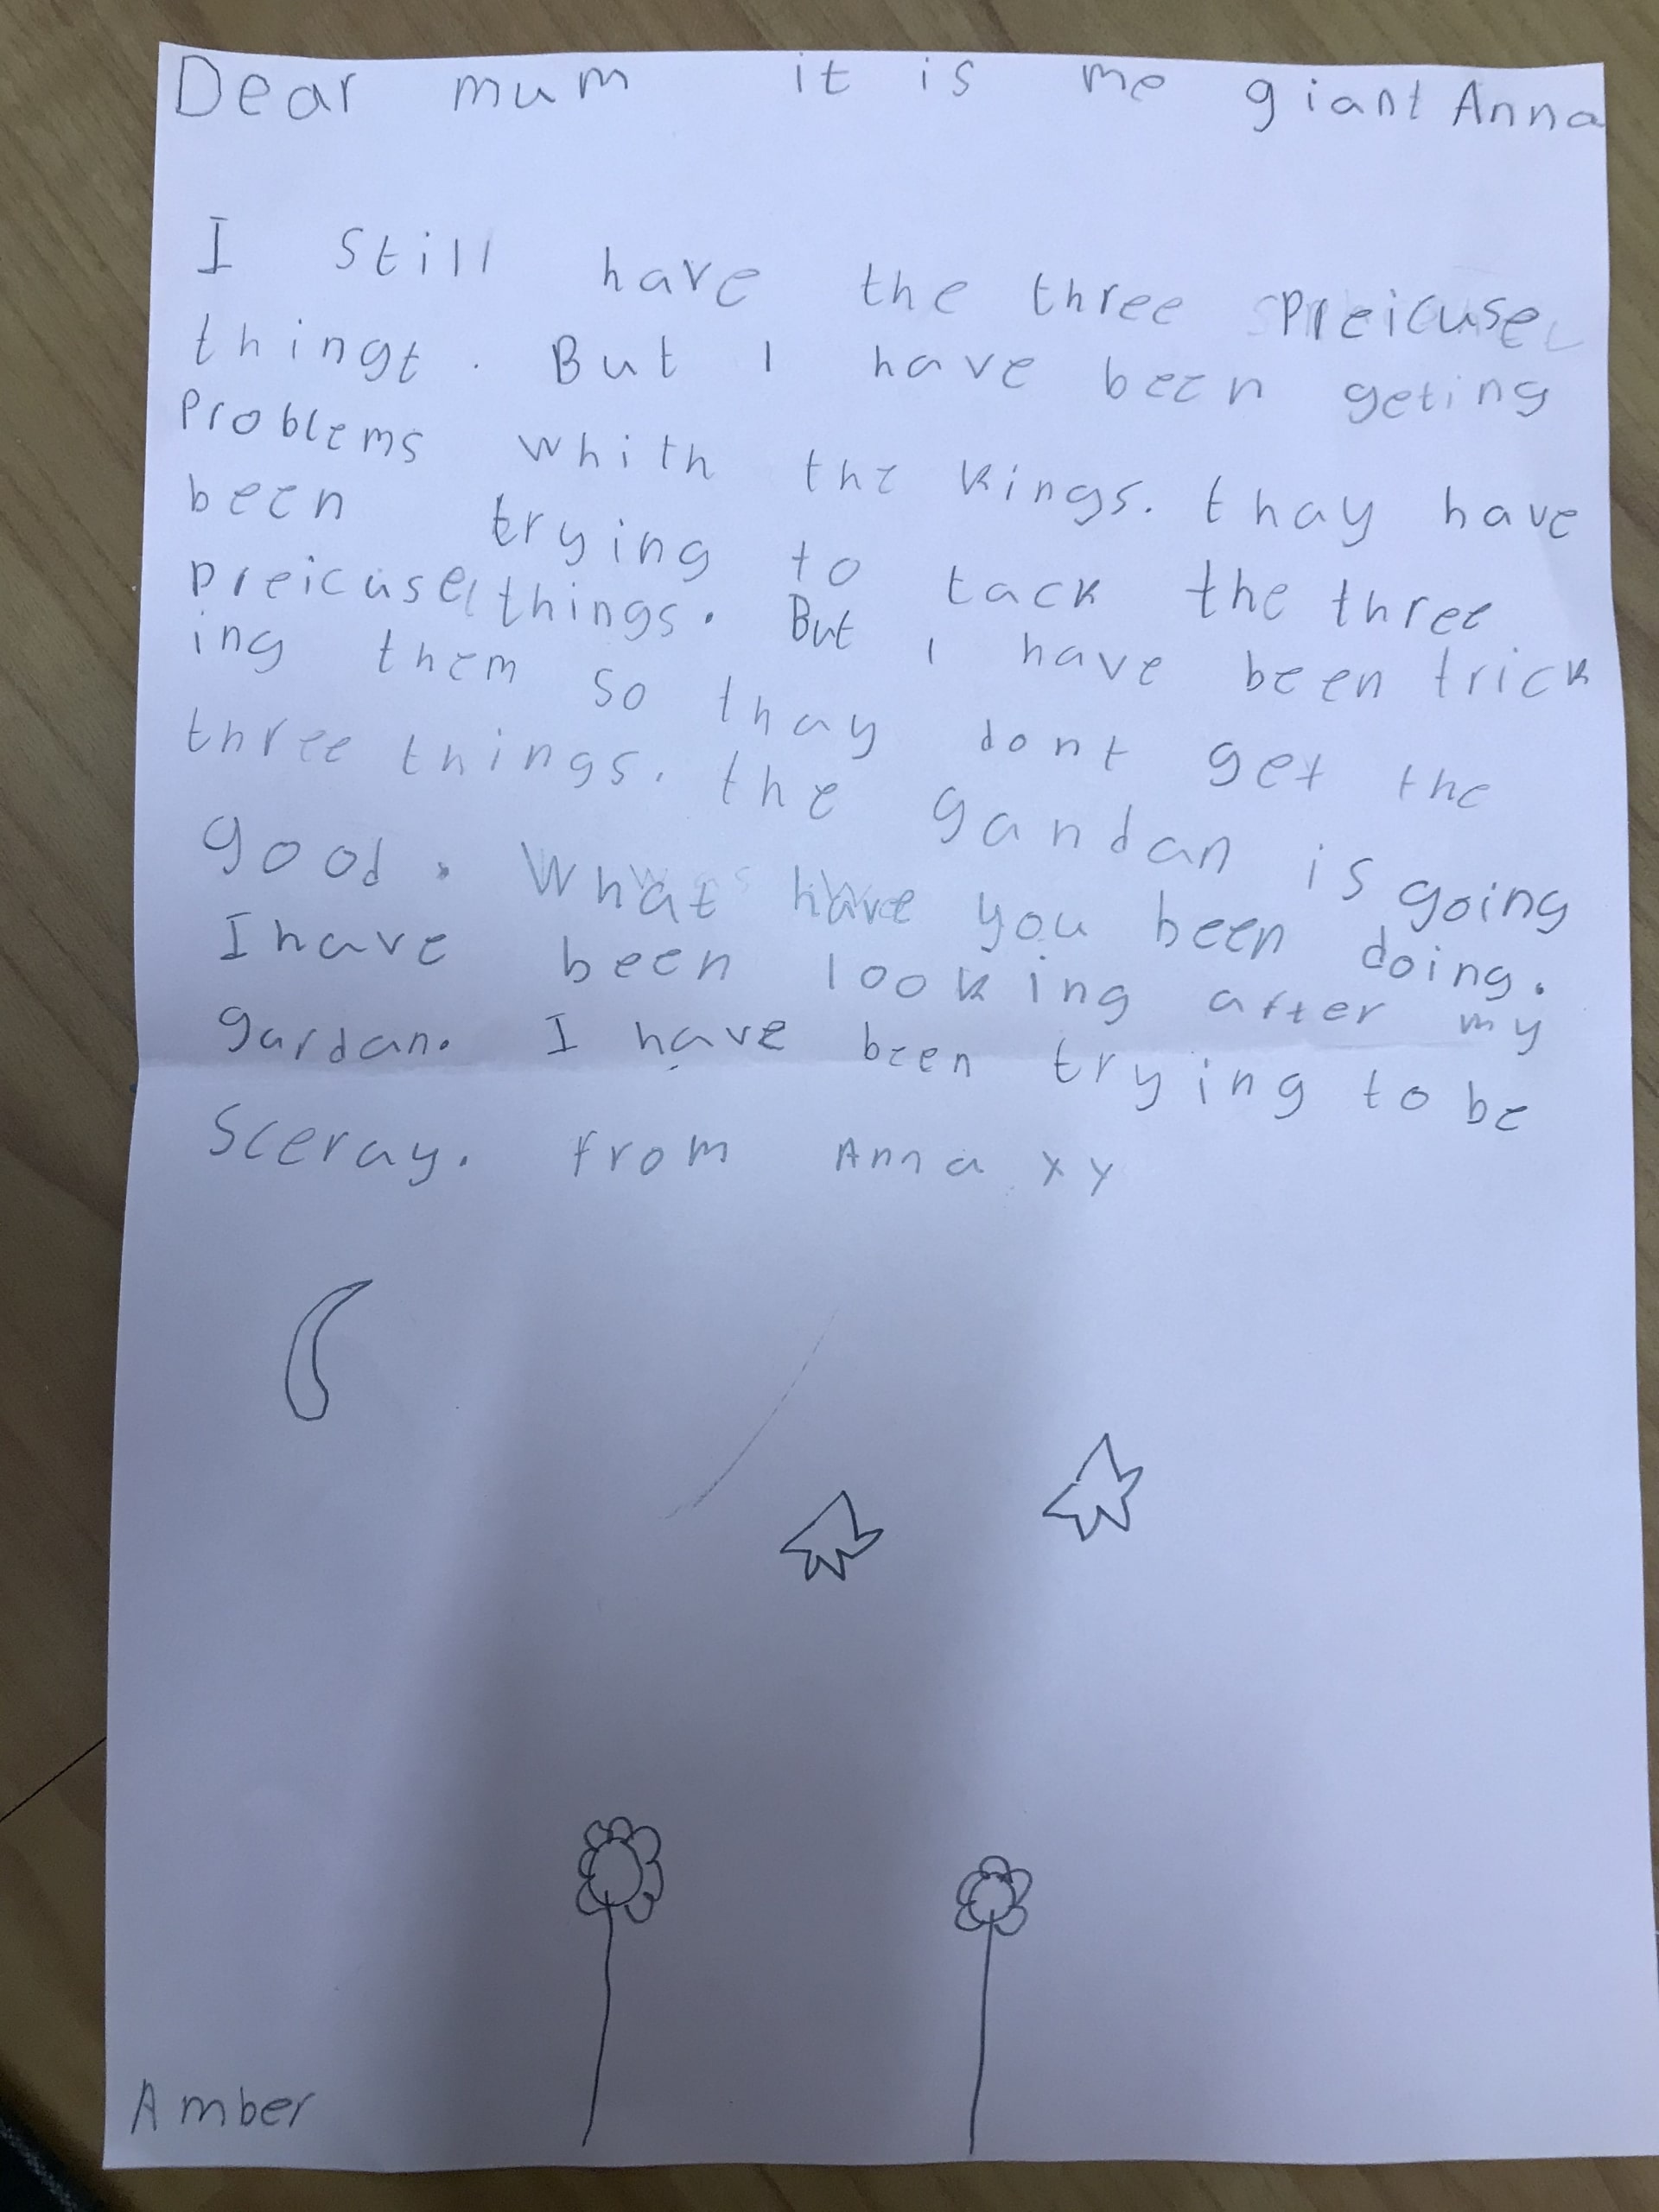 Dear mum it is me giant Anna
I still have the three preicuse
thingt. But I have been geting
problems whith the kings. thay have
been trying to tack the three
preicuse things. But I have been trick
ing them so thay dont get the
three things. the gandan is going
good. What have you been doing.
I have been looking after my
gardan. I have been trying to be
Sceray. from Anna xy
Amber